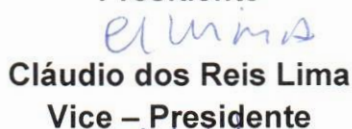 Cláudio dos Reis Lima
Vice – Presidente